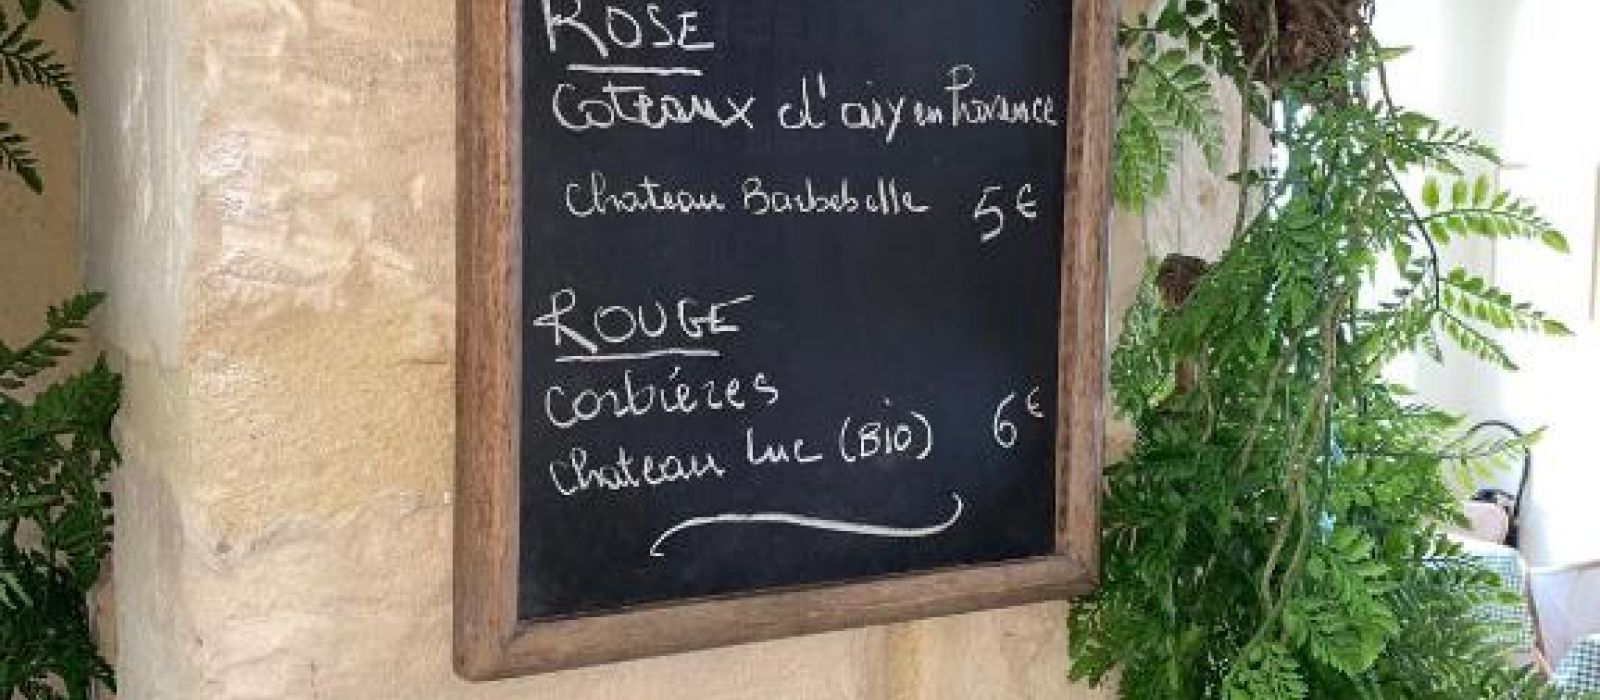 ROSE
Coteaux d'aix en Provence
Chateau Barbebelle 5€
ROUGE
Corbières
Chateau Luc (BIO) 6€